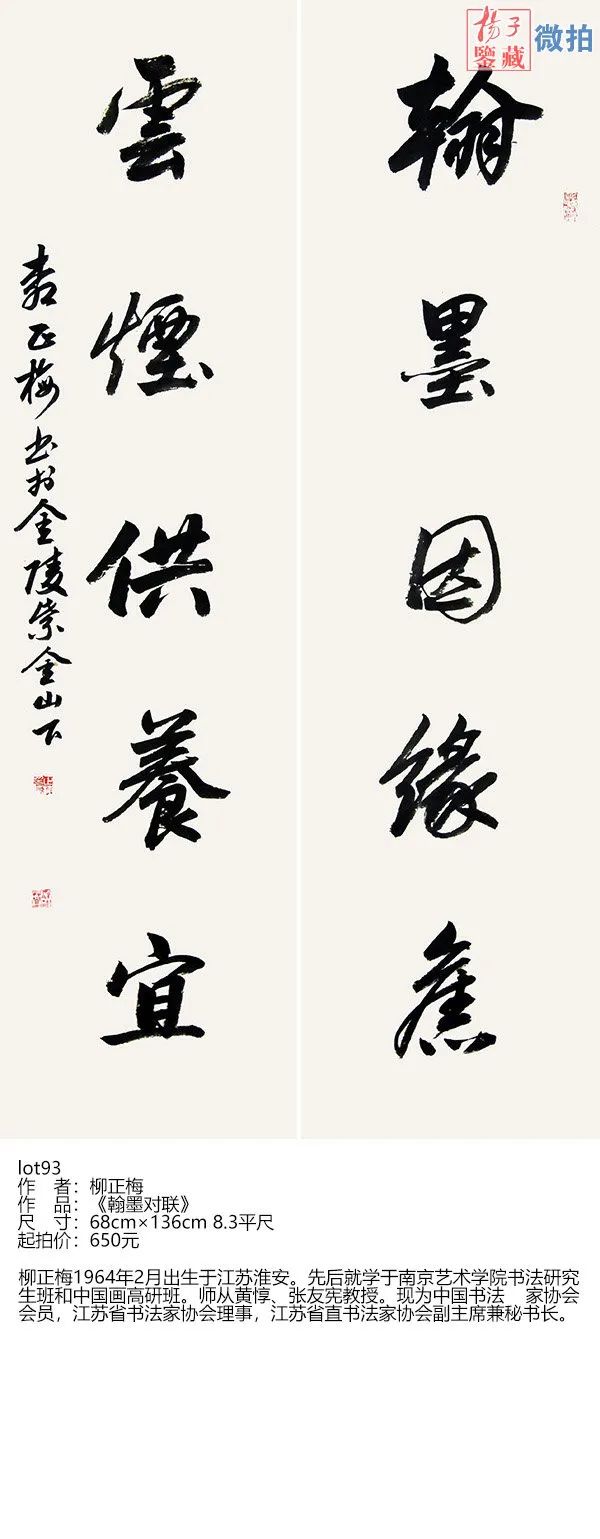 揚子
鑒藏
微拍
翰墨因緣舊
雲煙供養宜
柳正梅书於金陵紫金山下
lot93
作 者：柳正梅
作 品：《翰墨对联》
尺 寸：68cm×136cm 8.3平尺
起拍价：650元
柳正梅1964年2月出生于江苏淮安。先后就学于南京艺术学院书法研究
生班和中国画高研班。师从黄惇、张友宪教授。现为中国书法 家协会
会员，江苏省书法家协会理事，江苏省直书法家协会副主席兼秘书长。